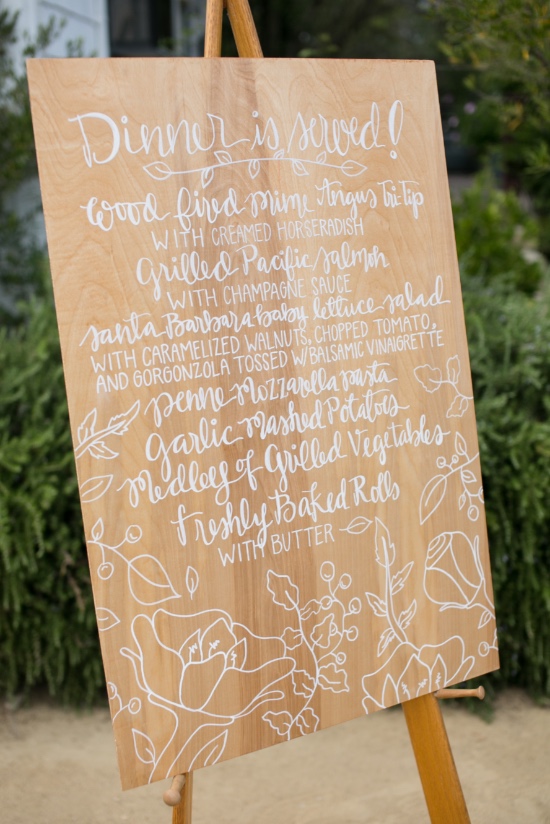 Dinner is served!
Wood fired mime Angus Tri-Tip
WITH CREAMED HORSERADISH
Grilled Pacific salmon
WITH CHAMPAGNE SAUCE
Santa Barbara baby lettuce salad
WITH CARAMELIZED WALNUTS, CHOPPED TOMATO,
AND GORGONZOLA TOSSED W/BALSAMIC VINAIGRETTE
penne mozzarella pasta
Garlic Mashed Potatoes
Medley of Grilled Vegetables
Freshly Baked Rolls
WITH BUTTER